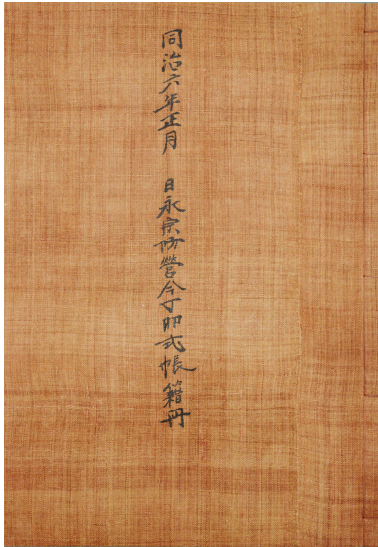 同治六年正月 日永宗防營今丁卯式帳籍冊